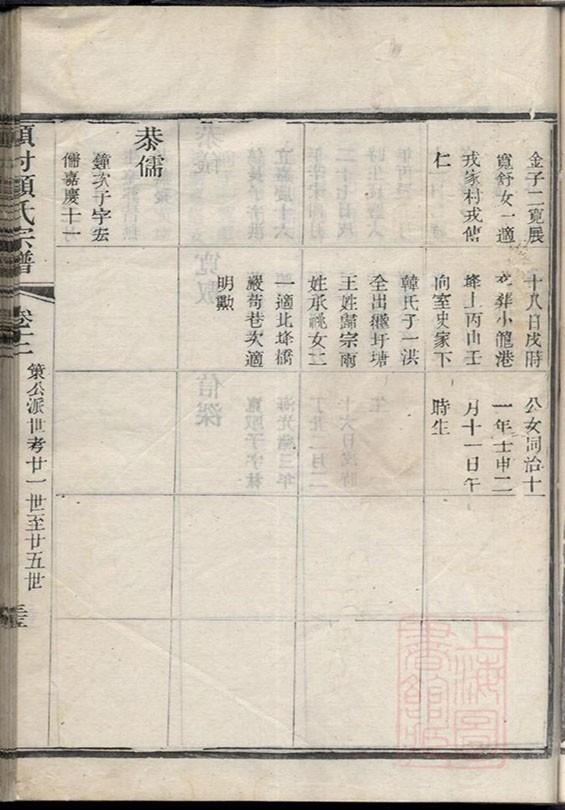 金子二寬展
寬舒女一適
戎家村戎儁
仁
恭儒
鐘次子字宏
儒嘉慶十一
十八日戌時
卒葬小龍港
埄上丙山壬
向室史家下
韓氏子一洪
全出繼圩塘
王姓歸宗兩
姓承祧女二
一適北埄橋
嚴苟巷次適
明勲
公女同治十
一年壬申二
月十一日午
時生
項村項氏宗譜
卷十二
第公派世考廿一世至廿五世
上海圖書館